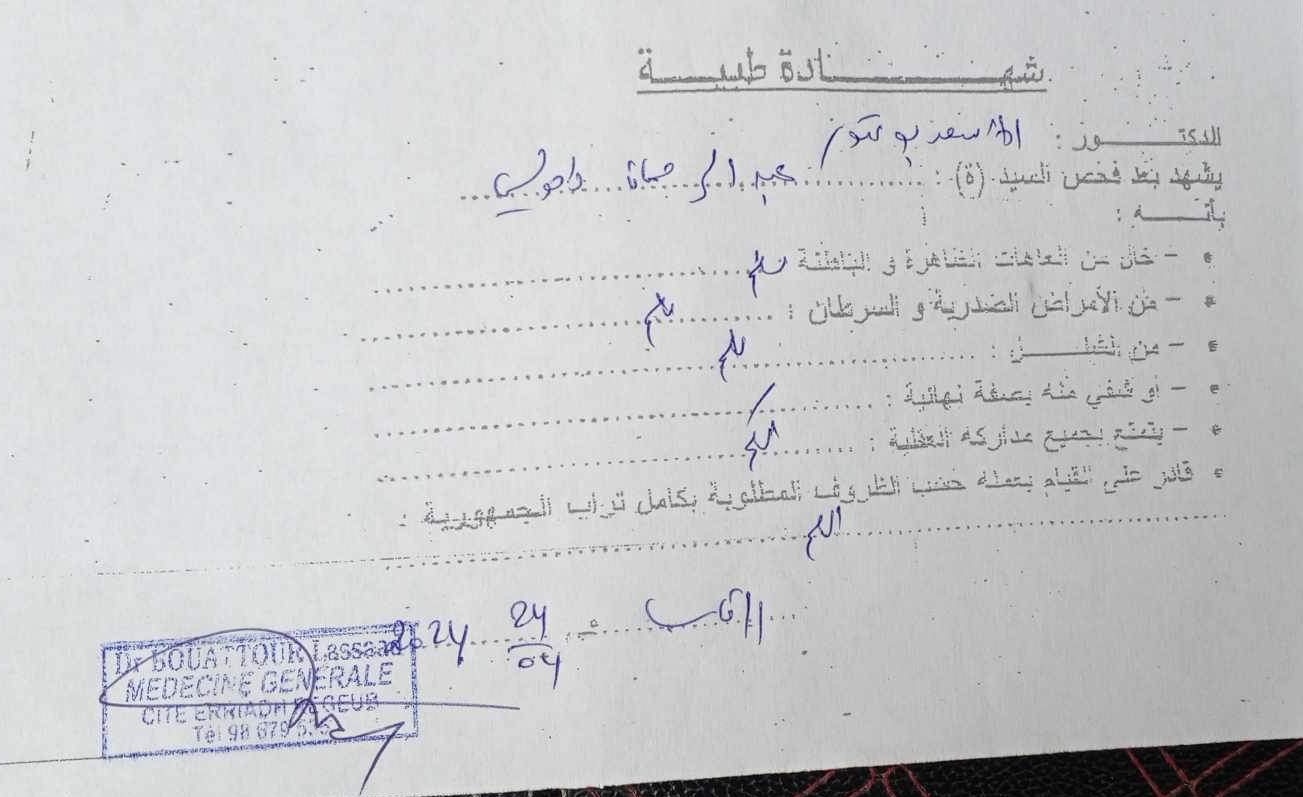 شهادة طبية
الدكتور : الأسعد بوعتور
يشهد بعد فحص السيد (ة) : عبد الرحمان
بأنه :
- خال من العاهات الظاهرة و الباطنة
- من الأمراض الصدرية و السرطان :
- من الشلل :
- أو شفي منه بصفة نهائية : /
- يتمتع بجميع مداركه العقلية :
قادر على القيام بعمله حسب الظروف المطلوبة بكامل تراب الجمهورية :
الرقاب في 24/04 2024
Dr BOUATTOUR Lassaad
MEDECINE GENERALE
CITE ERRIADH REGEUB
Tél 98 679